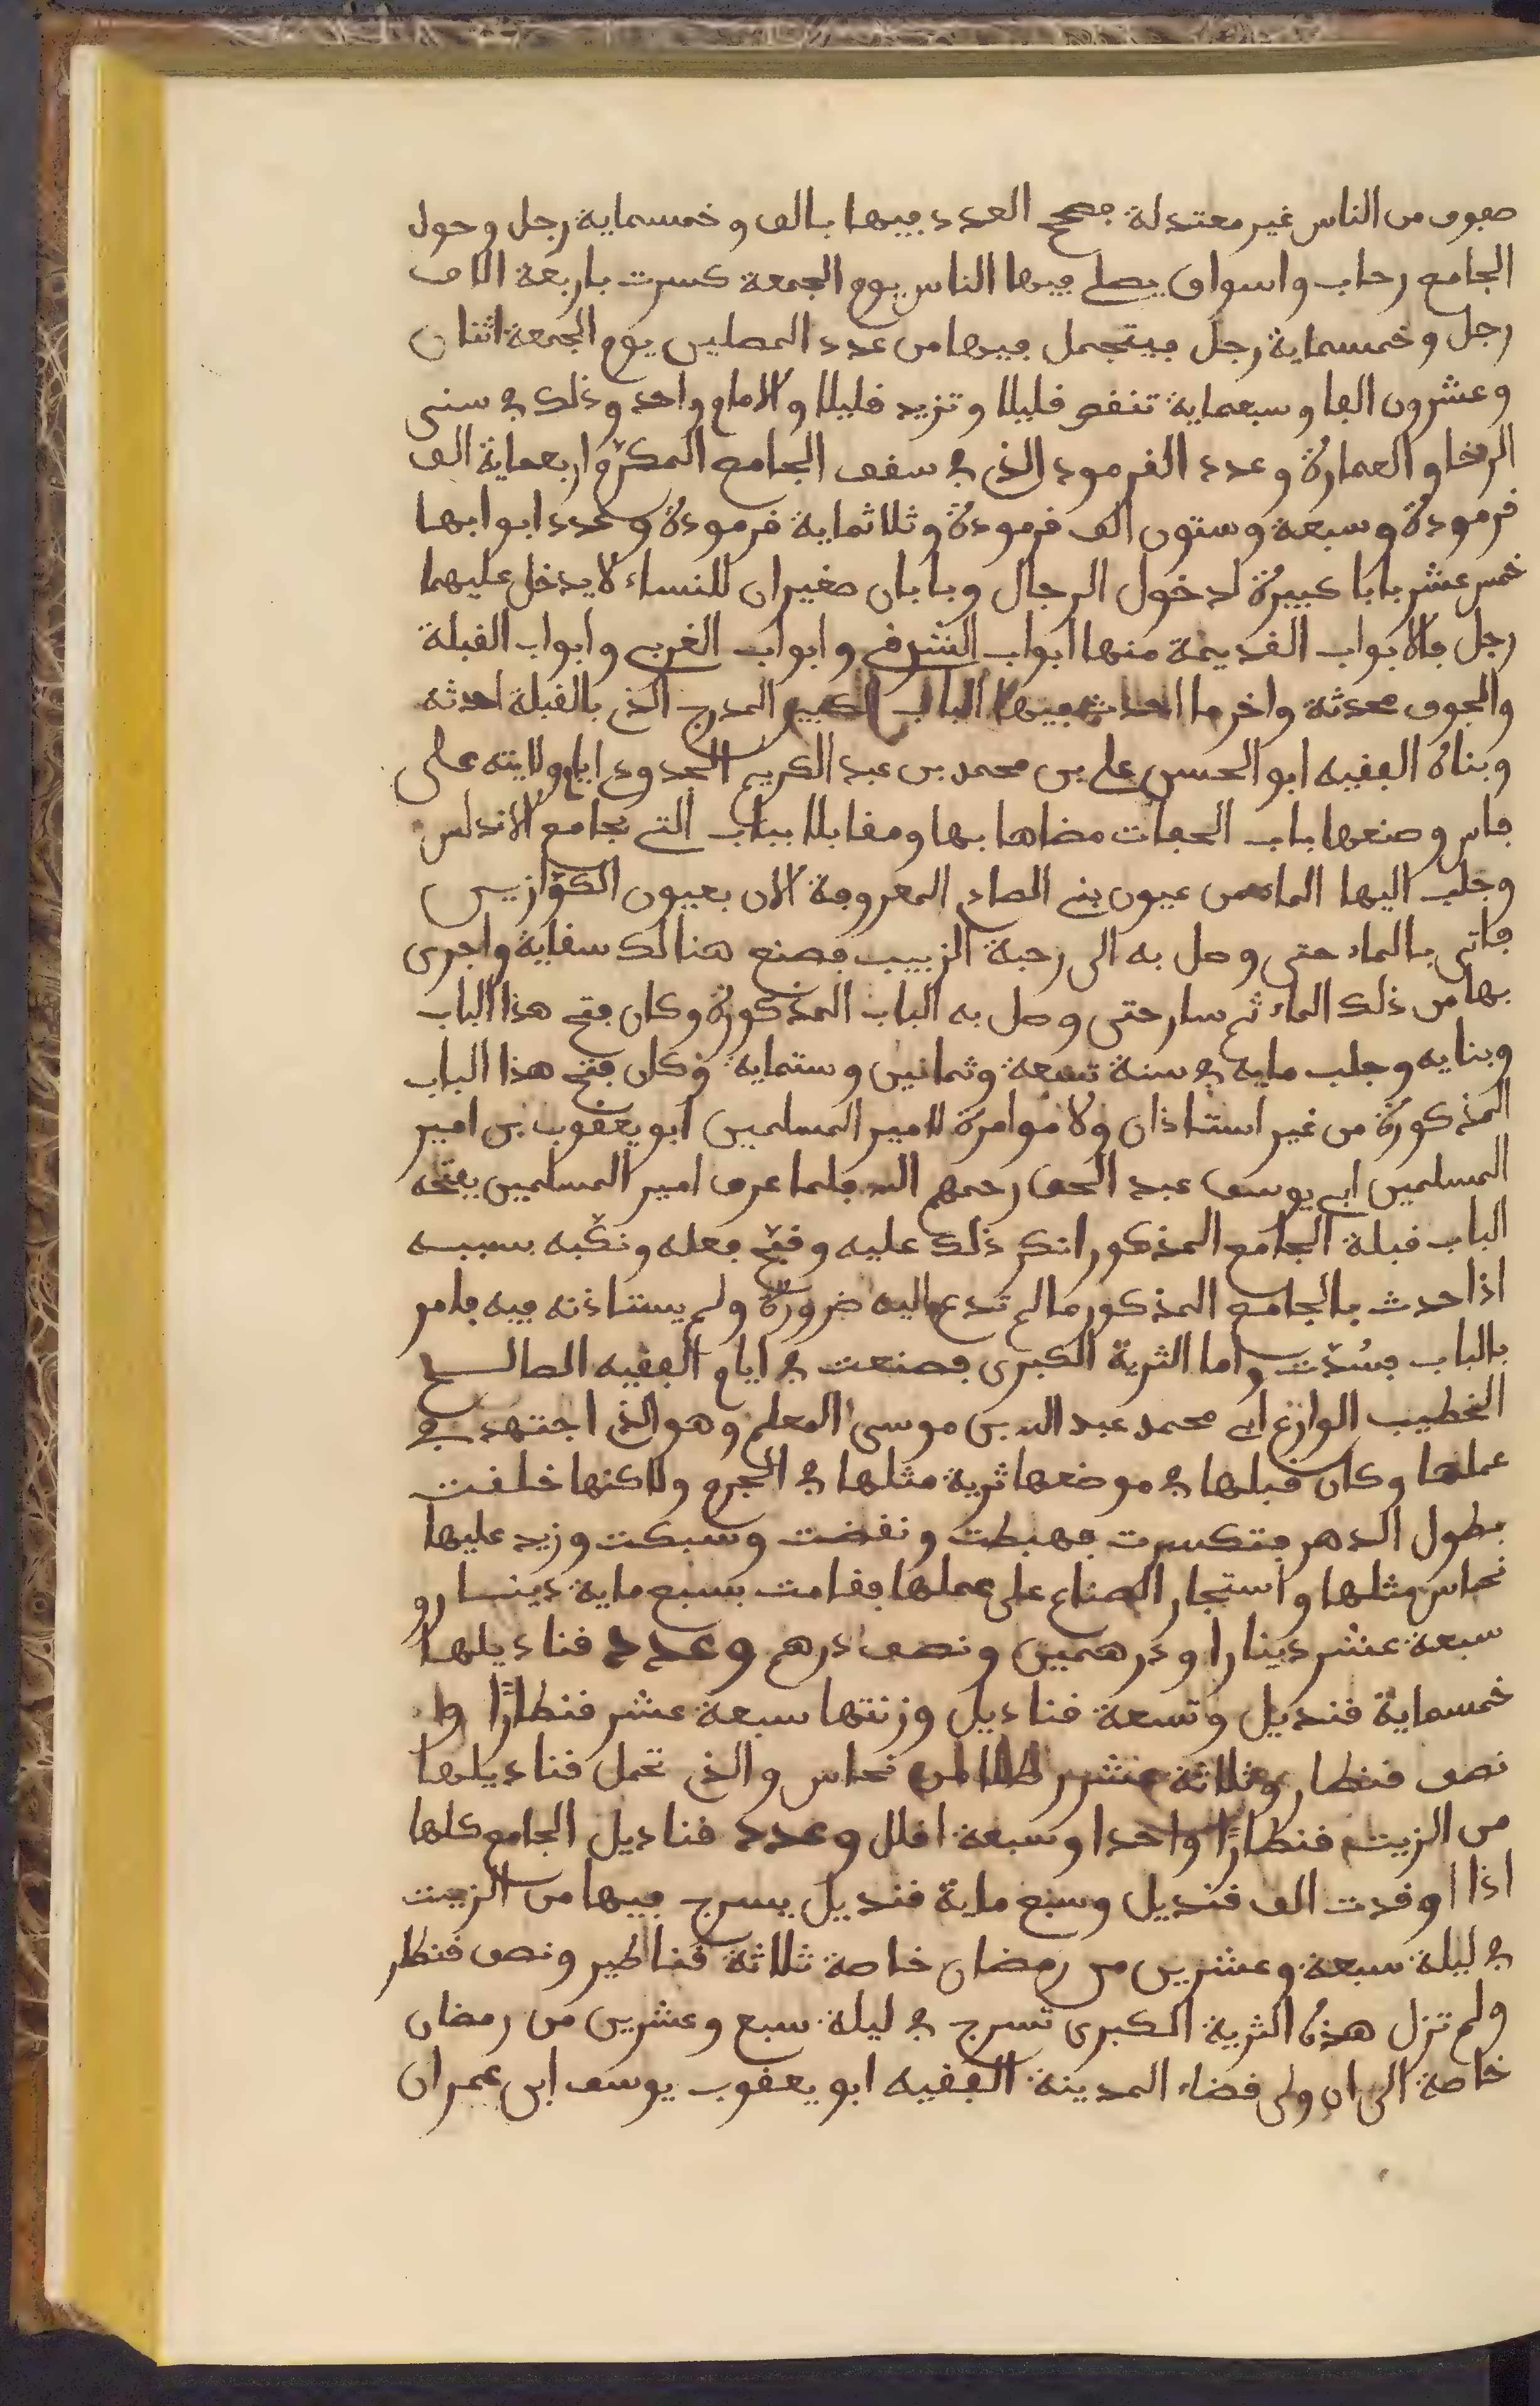 صفوف من الناس غير معتدلة فصح العدد فيها بالف وخمسماية رجل وحول
الجامع رحاب واسواق يصلي فيها الناس يوم الجمعة كسرت باربعة الاف
رجل وخمسماية رجل فيتجمل فيها من عدد المصلين يوم الجمعة اثنان
وعشرون الفا وسبعماية تنقص قليلا وتزيد قليلا والامام واحد وذلك في سني
الرخا والعمارة وعدد القرمود الذي في سقف الجامع المكرم اربعماية الف
قرمودة وسبعة وستون الف قرمودة وثلاثماية قرمودة وعدد ابوابها
خمس عشر بابا كبيرة لدخول الرجال وبابان صغيران للنساء لا يدخل عليهما
رجل فالابواب القديمة منها ابواب الشرفي وابواب الغربي وابواب القبلة
والجوف محدثة واخر ما احدث فيها الباب الكبير المدرج الذي بالقبلة احدثه
وبناه الفقيه ابو الحسن علي بن محمد بن عبد الكريم الحدودي ايام ولايته على
فاس وصنعها باب الحفات مضاها بها ومقابلا بباب التي بجامع الاندلس
وجلب اليها الماء من عيون بني الصادم المعروفة الان بعيون الكوازيس
فاتى بالماء حتى وصل به الى رحبة الزبيب فصنع هنالك سقاية واجرى
بها من ذلك الماء ثم سار حتى وصل به الباب المذكورة وكان فتح هذا الباب
وبنايه وجلب مايه في سنة تسعة وثمانين وستماية وكان فتح هذا الباب
المذكورة من غير استاذان ولا موامرة لامير المسلمين ابو يعقوب بن امير
المسلمين ابي يوسف عبد الحق رحمهم الله فلما عرف امير المسلمين بفتحه
الباب قبلة الجامع المذكور انكر ذلك عليه وقبح فعله ونكبه بسببه
اذا حدث بالجامع المذكور ما لم تدع اليه ضرورة ولم يستاذنه فيه فامر
بالباب فسُدّت واما الثرية الكبرى فصنعت في ايام الفقيه الصالح
الخطيب الوازع ابي محمد عبد الله بن موسى المعلم وهو الذي اجتهد في
عملها وكان قبلها في موضعها ثرية مثلها في الجرم ولاكنها خلقت
بطول الدهر فتكسرت فهبطت ونقضت وسبكت وزيد عليها
نحاس مثلها واستجار الصناع على عملها فقامت بسبع ماية دينار و
سبعة عشر دينارا ودرهمين ونصف درهم وعدد قناديلها
خمسماية قنديل وتسعة قناديل وزنتها سبعة عشر قنطارًا وا
نصف قنطار وثلاثة عشر رطلا من نحاس والذي تحمل قناديلها
من الزيت قنطارًا واحدا وسبعة اقلل وعدد قناديل الجامع كلها
اذا اوقدت الف قنديل وسبع ماية قنديل يسرج فيها من الزيت
في ليلة سبعة وعشرين من رمضان خاصة ثلاثة قناطير ونصف قنطار
ولم تزل هذه الثرية الكبرى تسرج في ليلة سبع وعشرين من رمضان
خاصة الى ان ولى قضاء المدينة الفقيه ابو يعقوب يوسف ابن عمران